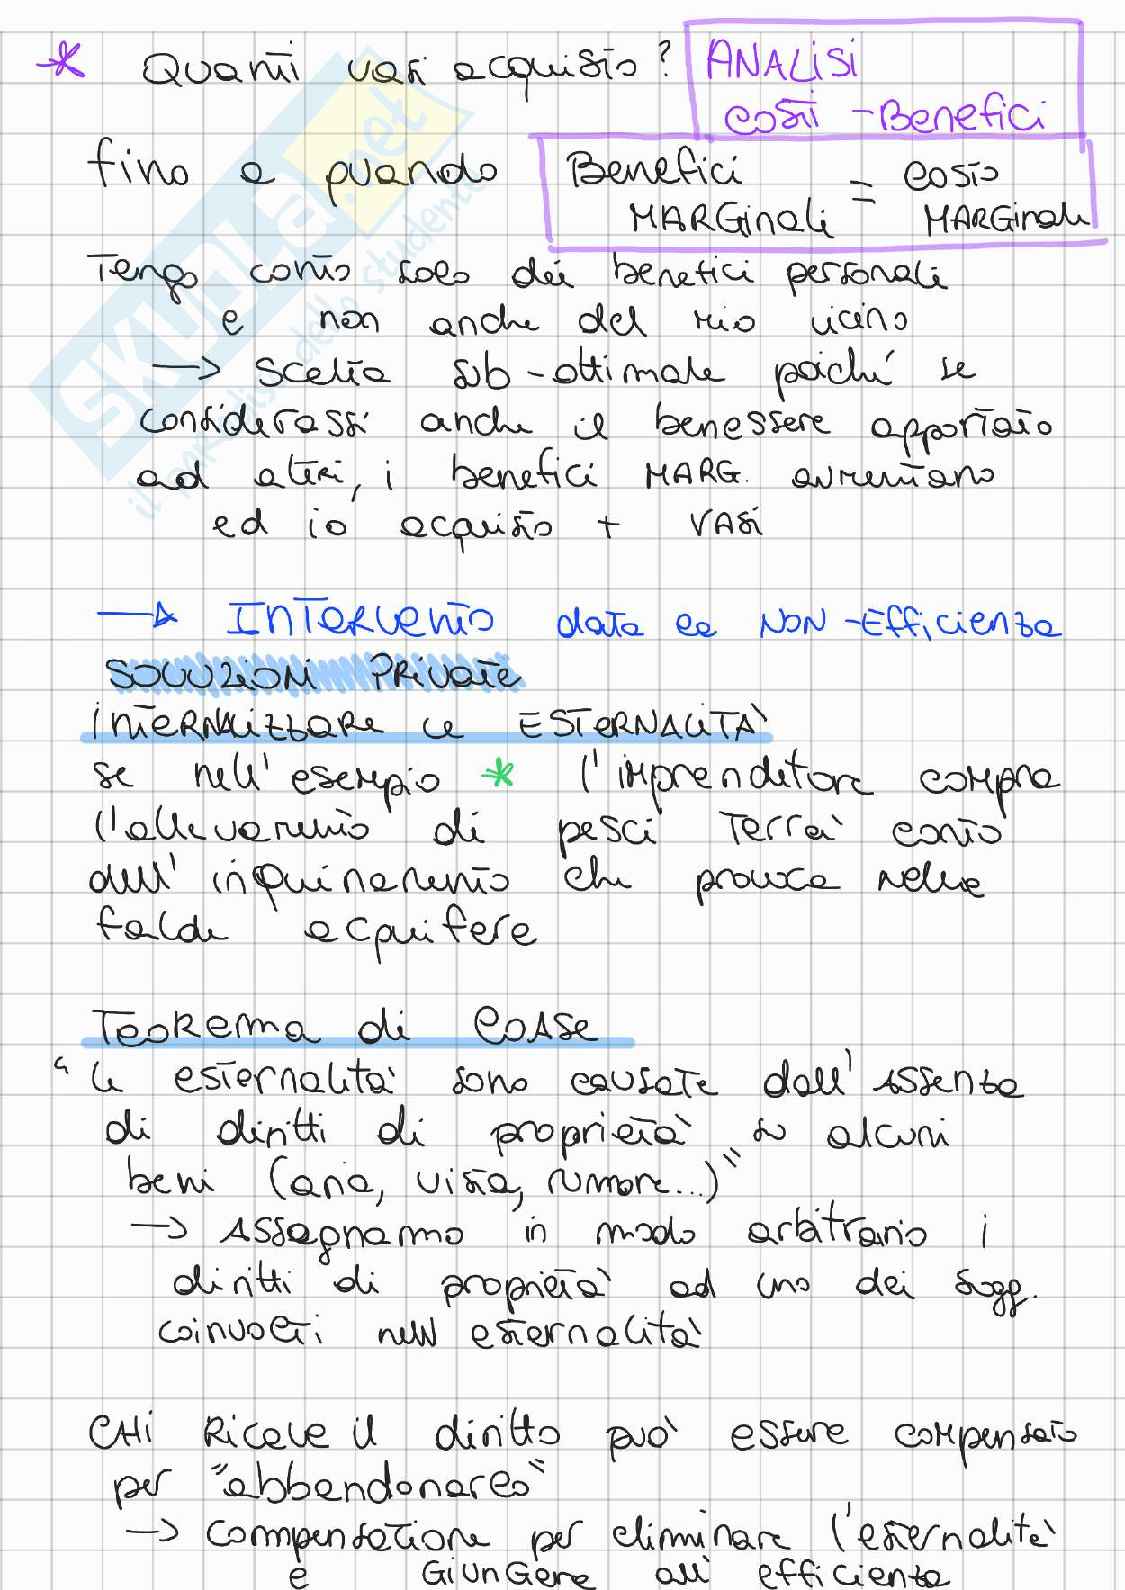 * Quanti vasi acquisto? ANALISI
costi - Benefici
fino a quando Benefici MARGinali = costo MARGinali
Tengo conto solo dei benefici personali
e non anche del mio vicino
→ scelta sub-ottimale poiché se
considerassi anche il benessere apportato
ad altri, i benefici MARG. aumentano
ed io acquisto + VASi
→ INTERVENTO data la NON-Efficienza
SOLUZIONI PRIVATE
INTERNALIZZARE le ESTERNALITÀ
se nell'esempio * l'imprenditore compra
l'allevamento di pesci terrà conto
dell'inquinamento che provoca nelle
falde acquifere
TEOREMA di COASE
"le esternalità sono causate dall'assenza
di diritti di proprietà su alcuni
beni (aria, vista, rumore...)"
→ Assegnamo in modo arbitrario i
diritti di proprietà ad uno dei sogg.
coinvolti nell'esternalità
CHi Riceve il diritto può essere compensato
per "abbandonarlo"
→ compensazione per eliminare l'esternalità
e GiUnGere all'efficienza
SKUOLA.net
il paradiso dello studente